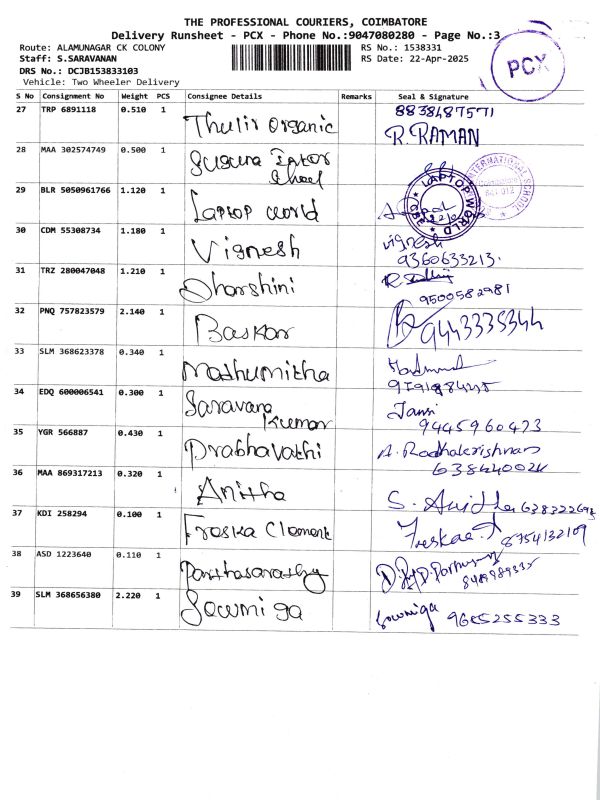 THE PROFESSIONAL COURIERS, COIMBATORE
Delivery Runsheet - PCX - Phone No.:9047080280 - Page No.:3
Route: ALAMUNAGAR CK COLONY RS No.: 1538331
Staff: S.SARAVANAN RS Date: 22-Apr-2025
DRS No.: DCJB153833103
Vehicle: Two Wheeler Delivery
PCX
S No Consignment No Weight PCS Consignee Details Remarks Seal & Signature
27 TRP 6891118 0.510 1 Thulir Organic 8838487571
R. RAMAN
28 MAA 302574749 0.500 1
INTERNATIONAL SCHOOL
29 BLR 5050961766 1.120 1 Laptop world
LAPTOP WORLD
30 CDM 55308734 1.180 1 Vignesh Vignesh
9360633213.
31 TRZ 280047048 1.210 1 Dharshini
9500582981
32 PNQ 757823579 2.140 1 Baskar 9443335344
33 SLM 368623378 0.340 1 Mathumitha
34 EDQ 600006541 0.300 1 Saravana
Kumar
9445960473
35 YGR 566887 0.430 1 Prabhavathi A. Radhakrishnan
36 MAA 869317213 0.320 1 Anitha S. Anitha
37 KDI 258294 0.100 1 Freska Clement
8754132109
38 ASD 1223640 0.110 1 Parthasarathy
39 SLM 368656380 2.220 1 Sowmiga Sowmiga 9685255333